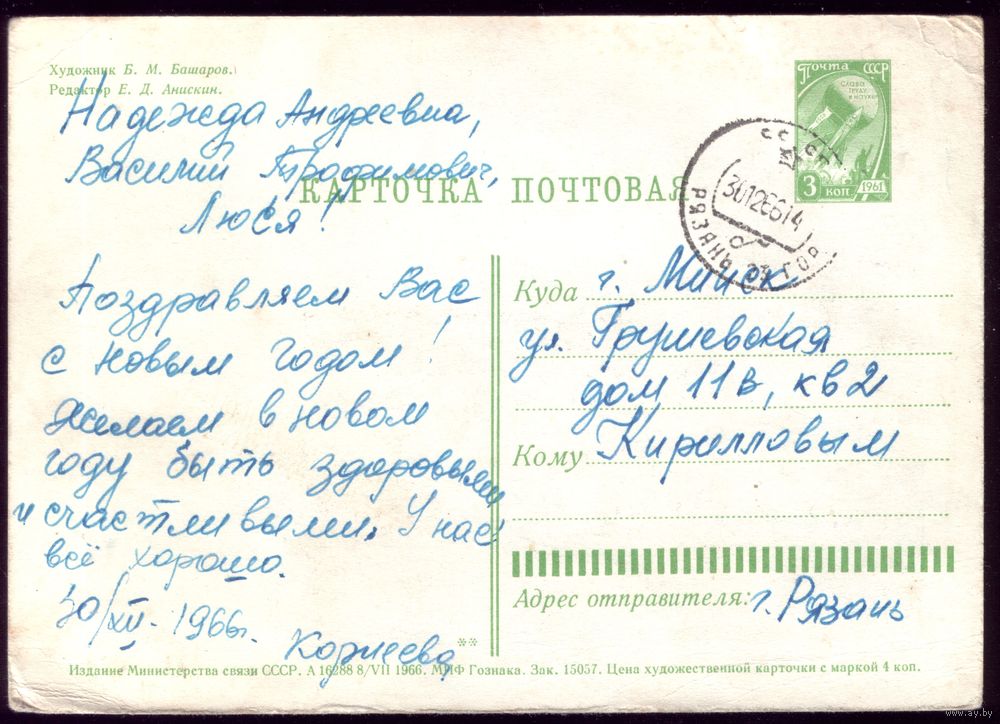 Художник Б. М. Башаров.
Редактор Е. Д. Анискин.
Почта СССР
СЛАВА
ТРУДУ
И НАУКЕ
3 коп
1961
КАРТОЧКА ПОЧТОВАЯ
СССР
301266 14
РЯЗАНЬ
ГОР
Надежда Андреевна,
Василий Трофимович,
Люся!
Поздравляем Вас
с новым годом!
Желаем в новом
году быть здоровыми
и счастливыми. У нас
всё хорошо.
30/XII. 1966г.
Корнеева
Куда г. Минск
ул. Грушевская
дом 11в, кв 2
Кому Кирилловым
Адрес отправителя: г. Рязань
**
Издание Министерства связи СССР. А 16288 8/VII 1966. МПФ Гознака. Зак. 15057. Цена художественной карточки с маркой 4 коп.
www.ay.by